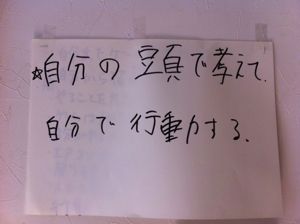 ☆自分の頭で考えて、
自分で行動する、